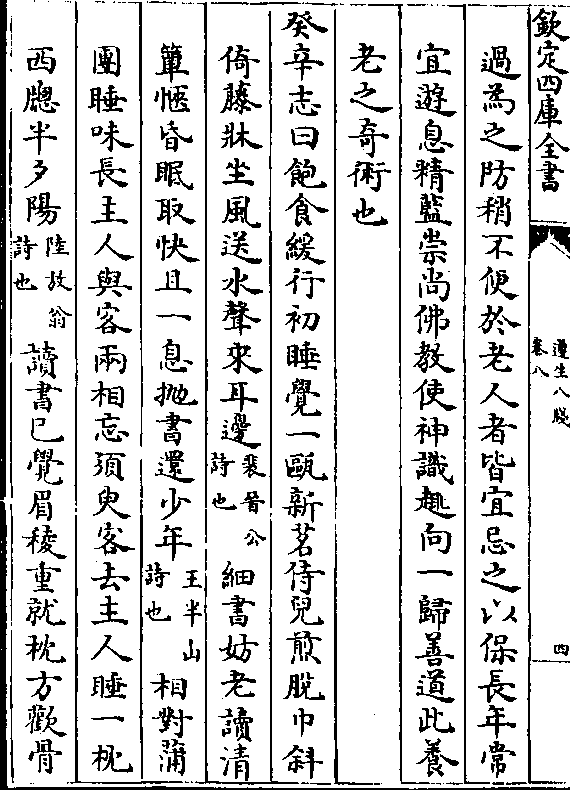 欽定四庫全書
遵生八牋
卷八
四
過為之防稍不便於老人者皆宜忌之以保長年常
宜遊息精藍崇尚佛教使神識趣向一歸善道此養
老之奇術也
癸辛志曰飽食緩行初睡覺一甌新茗侍兒煎脫巾斜
倚藤牀坐風送水聲來耳邊裴晉公詩也細書妨老讀清
簟愜昏眠取快且一息抛書還少年王半山詩也相對蒲
團睡味長主人與客兩相忘須臾客去主人睡一枕
西牕半夕陽陸放翁詩也讀書已覺眉稜重就枕方歡骨